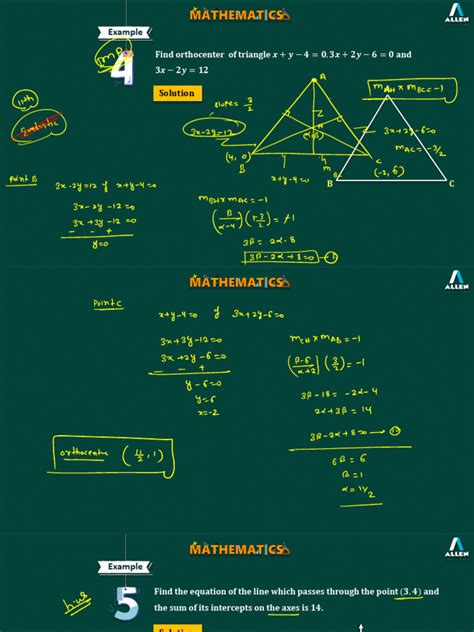 MATHEMATICS
ALLEN
Example
4
Find orthocenter of triangle x + y − 4 = 0, 3x + 2y − 6 = 0 and
3x − 2y = 12
Solution
11th
Quadratic
slope = 3/2
3x-2y=12
(4, 0)
B
A
H
C
(-2, 6)
x+y-4=0
3x+2y-6=0
m_AC = -3/2
m_AH × m_BC = -1
B
C
Point B
3x-2y=12 & x+y-4=0
3x-2y-12=0
3x+3y-12=0
- - +
y=0
m_BH × m_AC = -1
(β/α-4)(-3/2) = -1
3β = 2α-8
3β-2α+8=0 —①
MATHEMATICS
ALLEN
Point C
x+y-4=0 & 3x+2y-6=0
3x+3y-12=0
3x+2y-6=0
- - +
y-6=0
y=6
x=-2
orthocentre (11/2, 1)
m_CH × m_AB = -1
(β-6/α+2)(3/2) = -1
3β-18 = -2α-4
2α+3β = 14
3β-2α+8=0 —①
6β = 6
β=1
α=11/2
MATHEMATICS
ALLEN
Example
5
Find the equation of the line which passes through the point (3, 4) and
the sum of its intercepts on the axes is 14.
Solution